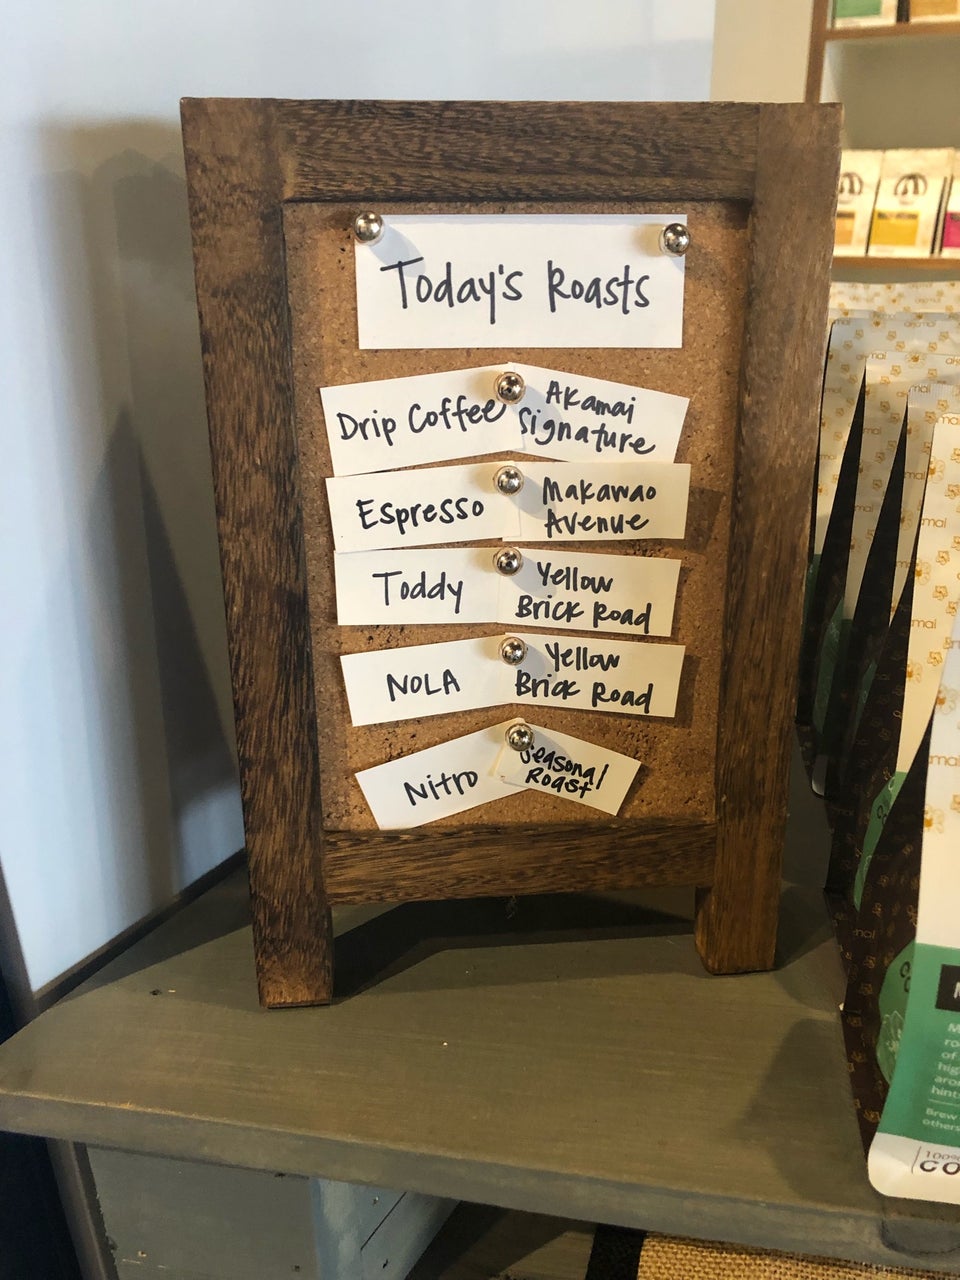 Today's Roasts
Drip Coffee
Akamai
Signature
Espresso
Makawao
Avenue
Toddy
Yellow
Brick Road
NOLA
Yellow
Brick Road
Nitro
Seasonal
Roast
akamai
mai
mai
mai
Brew
others
100%
CO